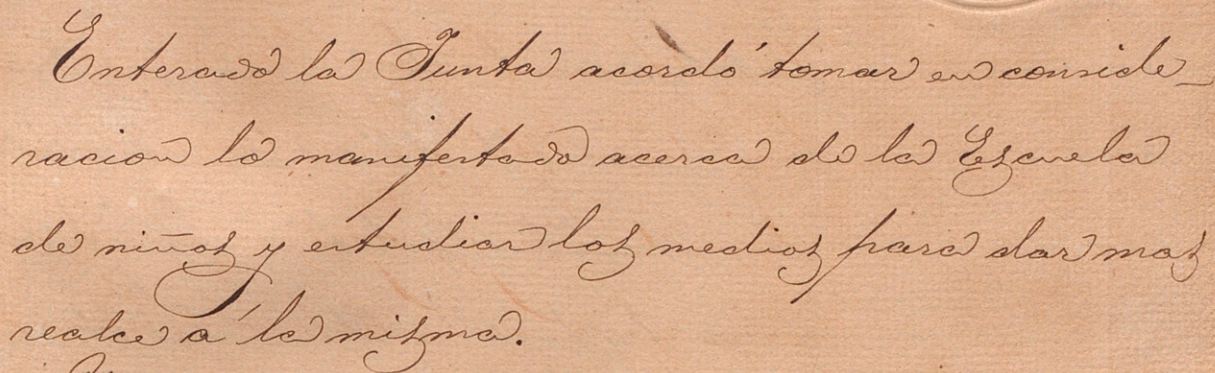 Enterada la Junta acordó tomar en conside-
racion lo manifestado acerca de la Escuela
de niños y estudiar los medios para dar mas
realce á la misma.